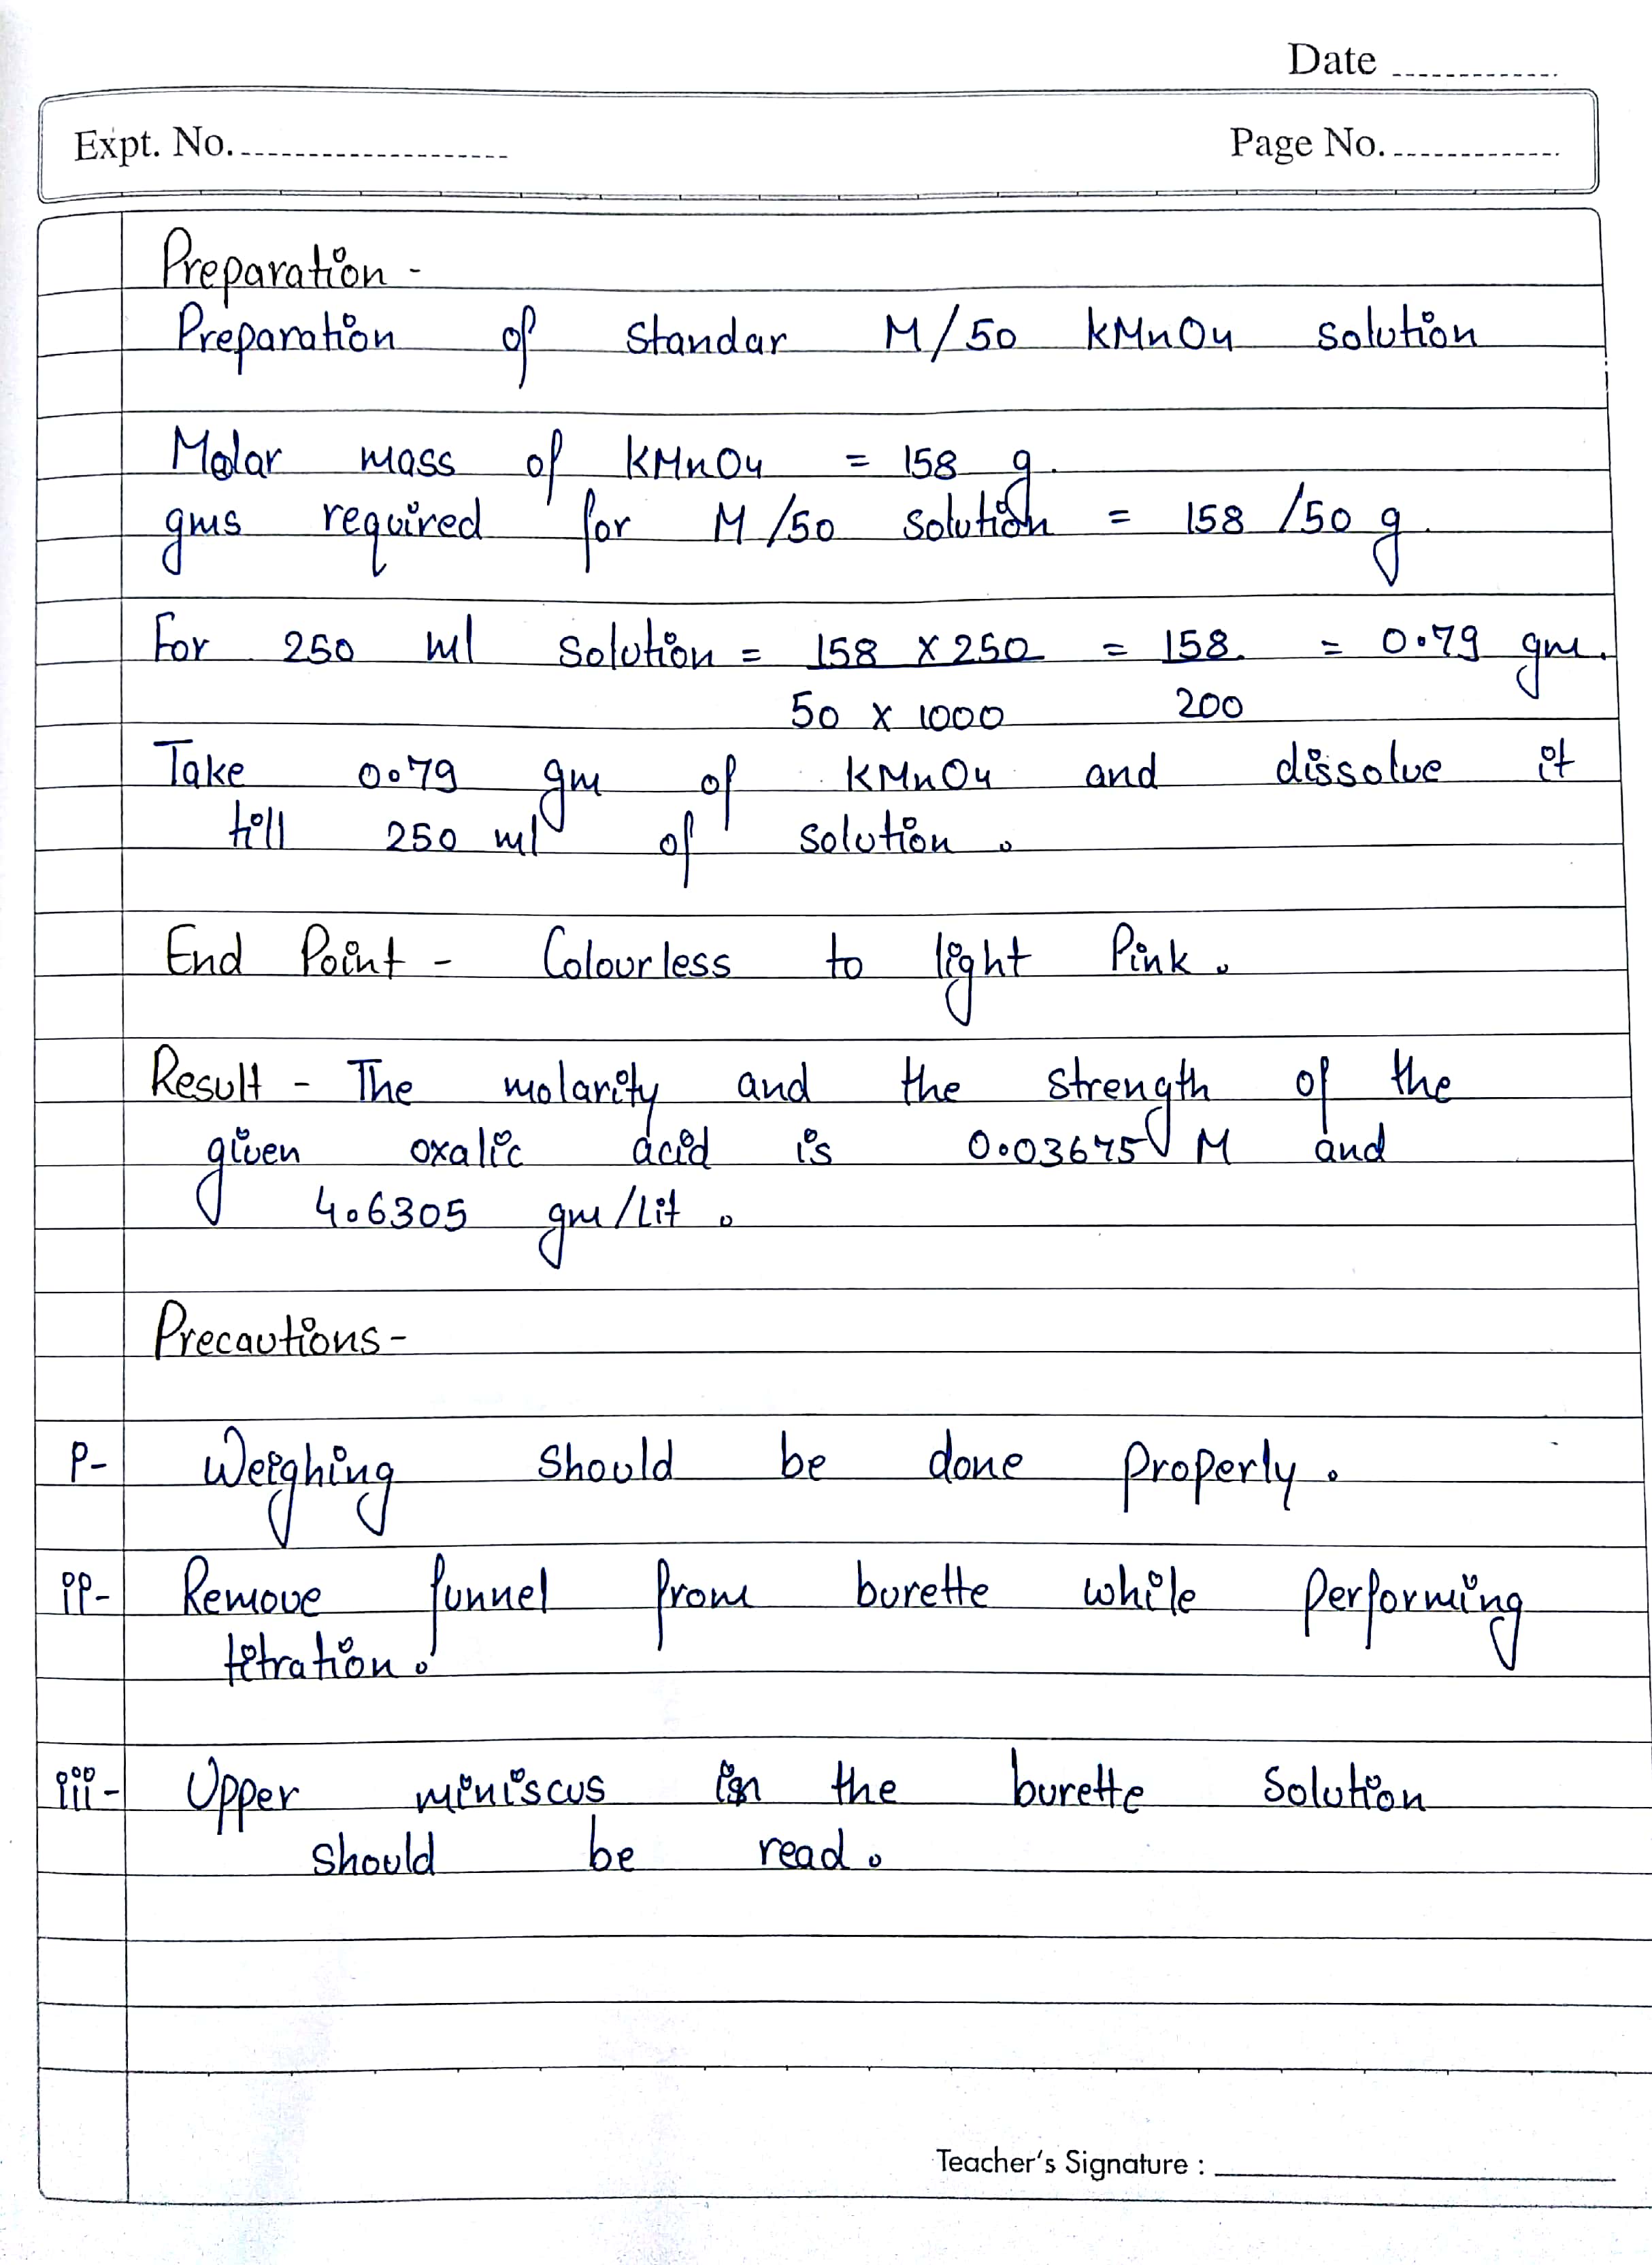 Date
Expt. No.
Page No.
Preparation -
Preparation of standar M/50 KMnO4 solution
Molar mass of KMnO4 = 158 g.
gms required for M/50 solution = 158/50 g.
For 250 ml solution = 158 x 250 = 158 = 0.79 gm.
50 x 1000 200
Take 0.79 gm of KMnO4 and dissolve it
till 250 ml of solution.
End Point - Colourless to light Pink.
Result - The molarity and the strength of the
given oxalic acid is 0.03675 M and
4.6305 gm/Lit.
Precautions -
i- Weighing should be done properly.
ii- Remove funnel from burette while performing
titration.
iii- Upper miniscus in the burette solution
should be read.
Teacher's Signature :